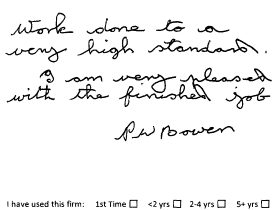 Work done to a
very high standard.
I am very pleased
with the finished job
PW Bowen
I have used this firm: 1st Time ☐ <2 yrs ☐ 2-4 yrs ☐ 5+ yrs ☐